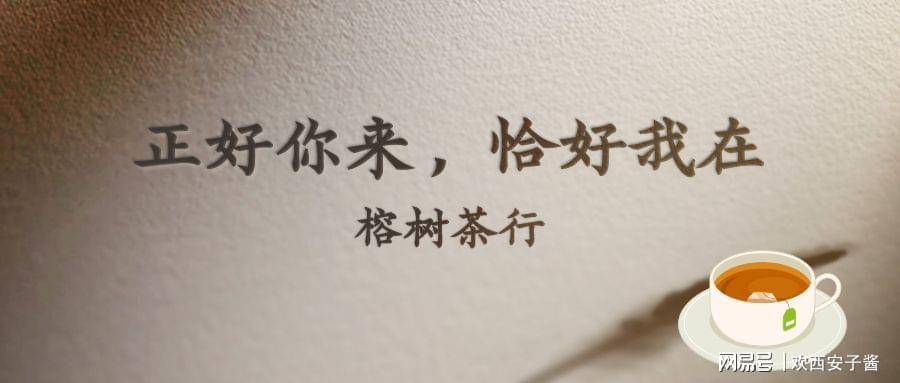 正好你来，恰好我在
榕树茶行
网易号 | 欢西安子酱